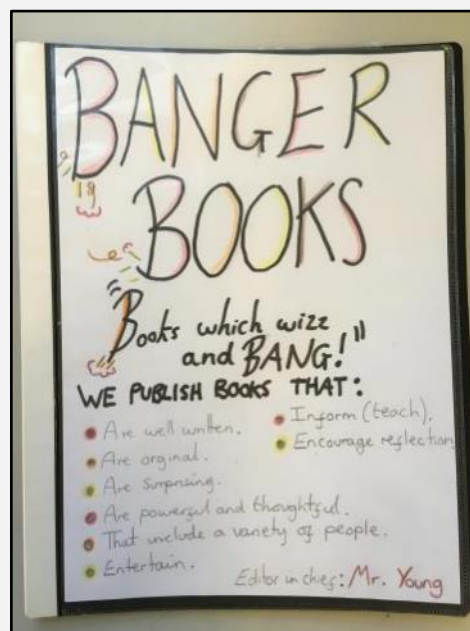 BANGER
BOOKS
"Books which wizz
and BANG!"
WE PUBLISH BOOKS THAT:
• Are well written.
• Are orginal.
• Are surprising.
• Are powerful and thoughtful.
• That include a variety of people.
• Entertain.
• Inform (teach).
• Encourage reflection
Editor in chief: Mr. Young